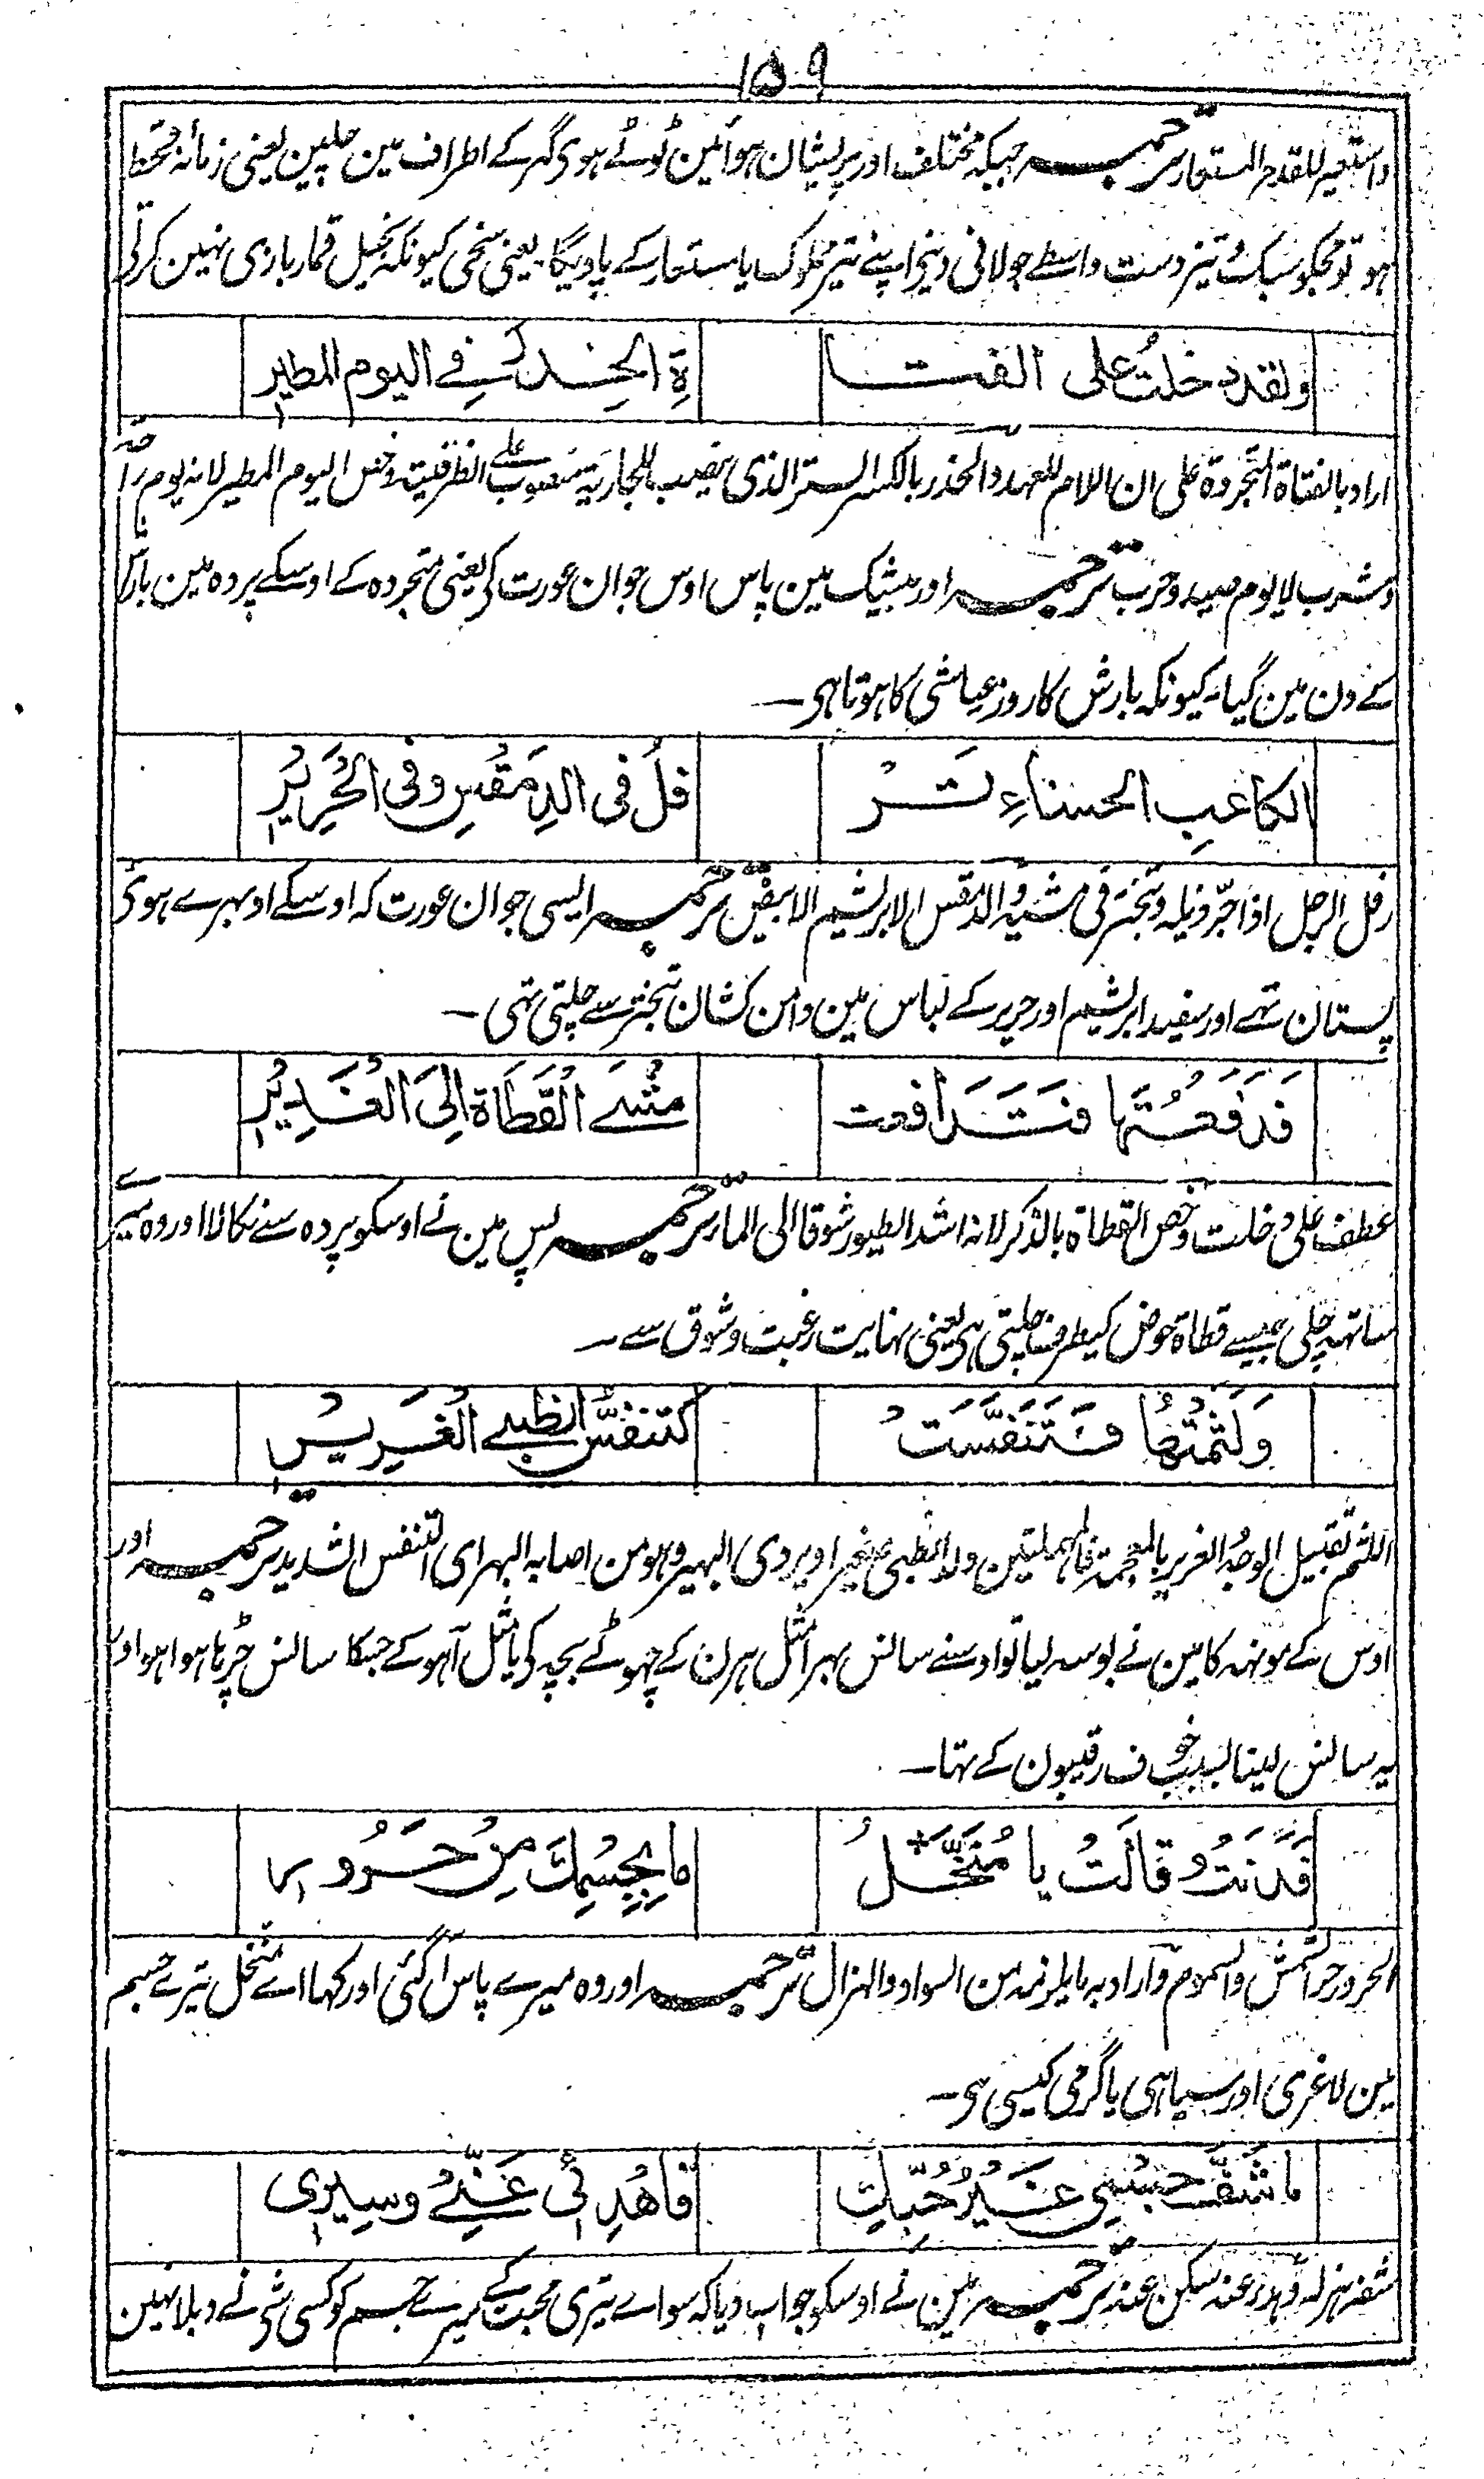 ۱۵۹
واستعیر للقدح المستعار ترجمہ جبکہ مختلف اور پریشان ہوائین ٹوٹے ہوی گھر کے اطراف مین چلین یعنی زمانہ قحط
ہو تو مجکو سبک و تیز دست واسطے جولانی دینے اپنے تیر مملوک یا مستعار کے پاویگا یعنی سخی کیونکہ بخیل قمار بازی نہین کرتے
ولقد دخلتُ علی الفتا ۃِ الخِدرَ فے الیوم المطیرِ
اراد بالفتاۃ المتجردۃ علی ان اللام للعہد والخدر بالکسر الستر الذی ینصب للجاریۃ منصوب علے الظرفیۃ وخص الیوم المطیر لانہ یوم راحۃ
وشرب لا یوم صید وحرب ترجمہ اور بیشک مین پاس اوس جوان عورت کی یعنی متجردہ کے اوسکے پردہ مین بارش
کے دن مین گیا۔ کیونکہ بارش کا روز عیاشی کا ہوتا ہی ۔
الکاعبِ الحسناءِ تَرْ فلُ فی الدِمَقْسِ وفی الحَرِیرِ
رفل الرجل اذا جرّ ذیلہ وتبختر فی مشیہ والدمقس الابریشم الابیض ترجمہ ایسی جوان عورت کہ اوسکے اوبہرے ہوی
پستان تہے اور سفید ابریشم اور حریر کے لباس مین دامن کشان تبختر سے چلتی تہی ۔
فَدَفَعْتُہَا فَتَدَافَعت مشْیَ الْقَطَاۃِ اِلیَ الْغَدِیْرِ
عطف علی دخلت وخص القطاۃ بالذکر لانہ اشد الطیور شوقا الی الماء ترجمہ پس مین نے اوسکو پردہ سے نکالا اور وہ میرے
ساتہہ چلی جیسے قطاۃ حوض کیطرف چلتی ہی یعنی نہایت رغبت و شوق سے ۔
وَلَثَمْتُھَا فَتَنَفَّسَتْ کتنفسُّ الظبے الْغَرِیرِ
اللثم تقبیل الوجہ الغریر بالمعجمۃ فالمہملتین ولد الظبی صغیر ویروی البہیر وہو من اصابہ البہر ای التنفس الشدید ترجمہ اور
اوس کے مونہہ کا مین نے بوسہ لیا تو اوسنے سانس بہرا مثل ہرن کے چہوٹے بچہ کی یا مثل آہو کے جسکا سانس چڑہا ہوا ہو اور
یہ سانس لینا بسبب خوف رقیبون کے تہا ۔
فَدَنَتْ وقالَتْ یا مُنَخَّلُ مابِجِسْمِكَ مِنْ حَرُورِ
الحرور حر الشمس والسموم واراد بہ ما یلزمہ من السواد والہزال ترجمہ اور وہ میرے پاس آ گئی اور کہا اے منخل تیرے جسم
مین لاغری اور سیاہی یا گرمی کیسی ہی ۔
ماشَفَّ جِسْمِی غَیْرُ حُبِّكِ فَاھْدِئی عَنِّے وسِیرِی
شفہ ہزلہ وہدء عنہ سکن عنہ ترجمہ مین نے اوسکو جواب دیا کہ سواے تیری محبت کے میرے جسم کو کسی شی نے دبلا نہین